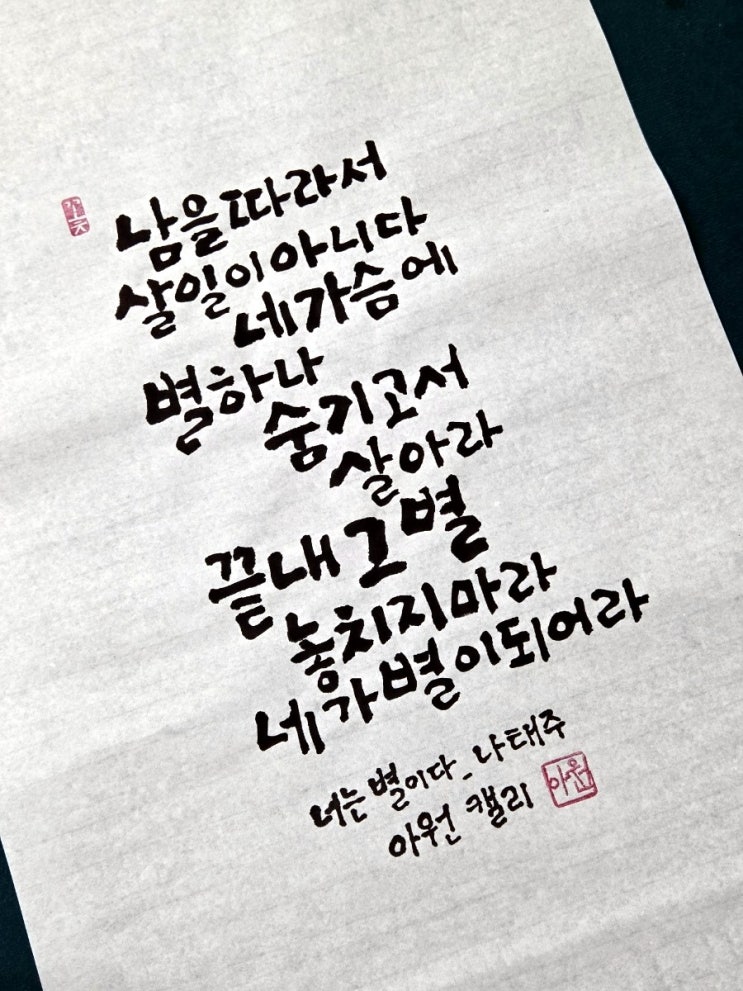 꽃
남을 따라서
살 일이 아니다
네 가슴에
별 하나
숨기고서
살아라
끝내 그 별
놓치지 마라
네가 별이 되어라
너는 별이다_나태주
아원 캘리
아원